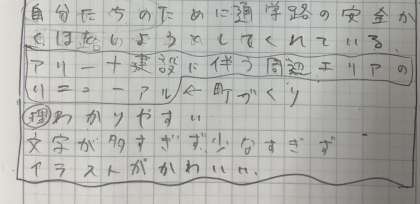 自分たちのために通学路の安全が
ではないようにしてくれている。
アリーナ建設に伴う周辺エリアの
リニューアル ← 町づくり
理 わかりやすい
文字が多すぎず、少なすぎず
イラストがかわいい。